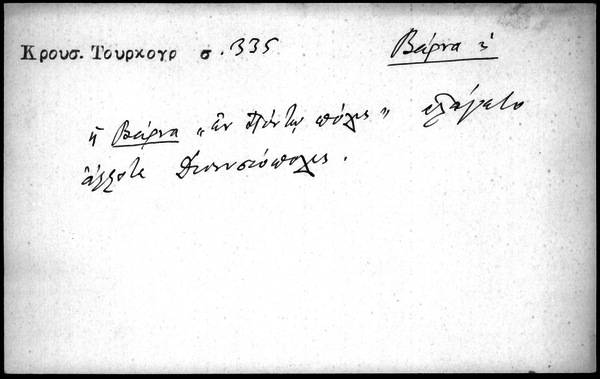 Κρουσ. Τουρκογρ σ. 335
Βάρνα ἡ
ἡ Βάρνα „ἐν Πόντῳ πόλις" ἐλέγετο
ἄλλοτε Διονυσιόπολις.